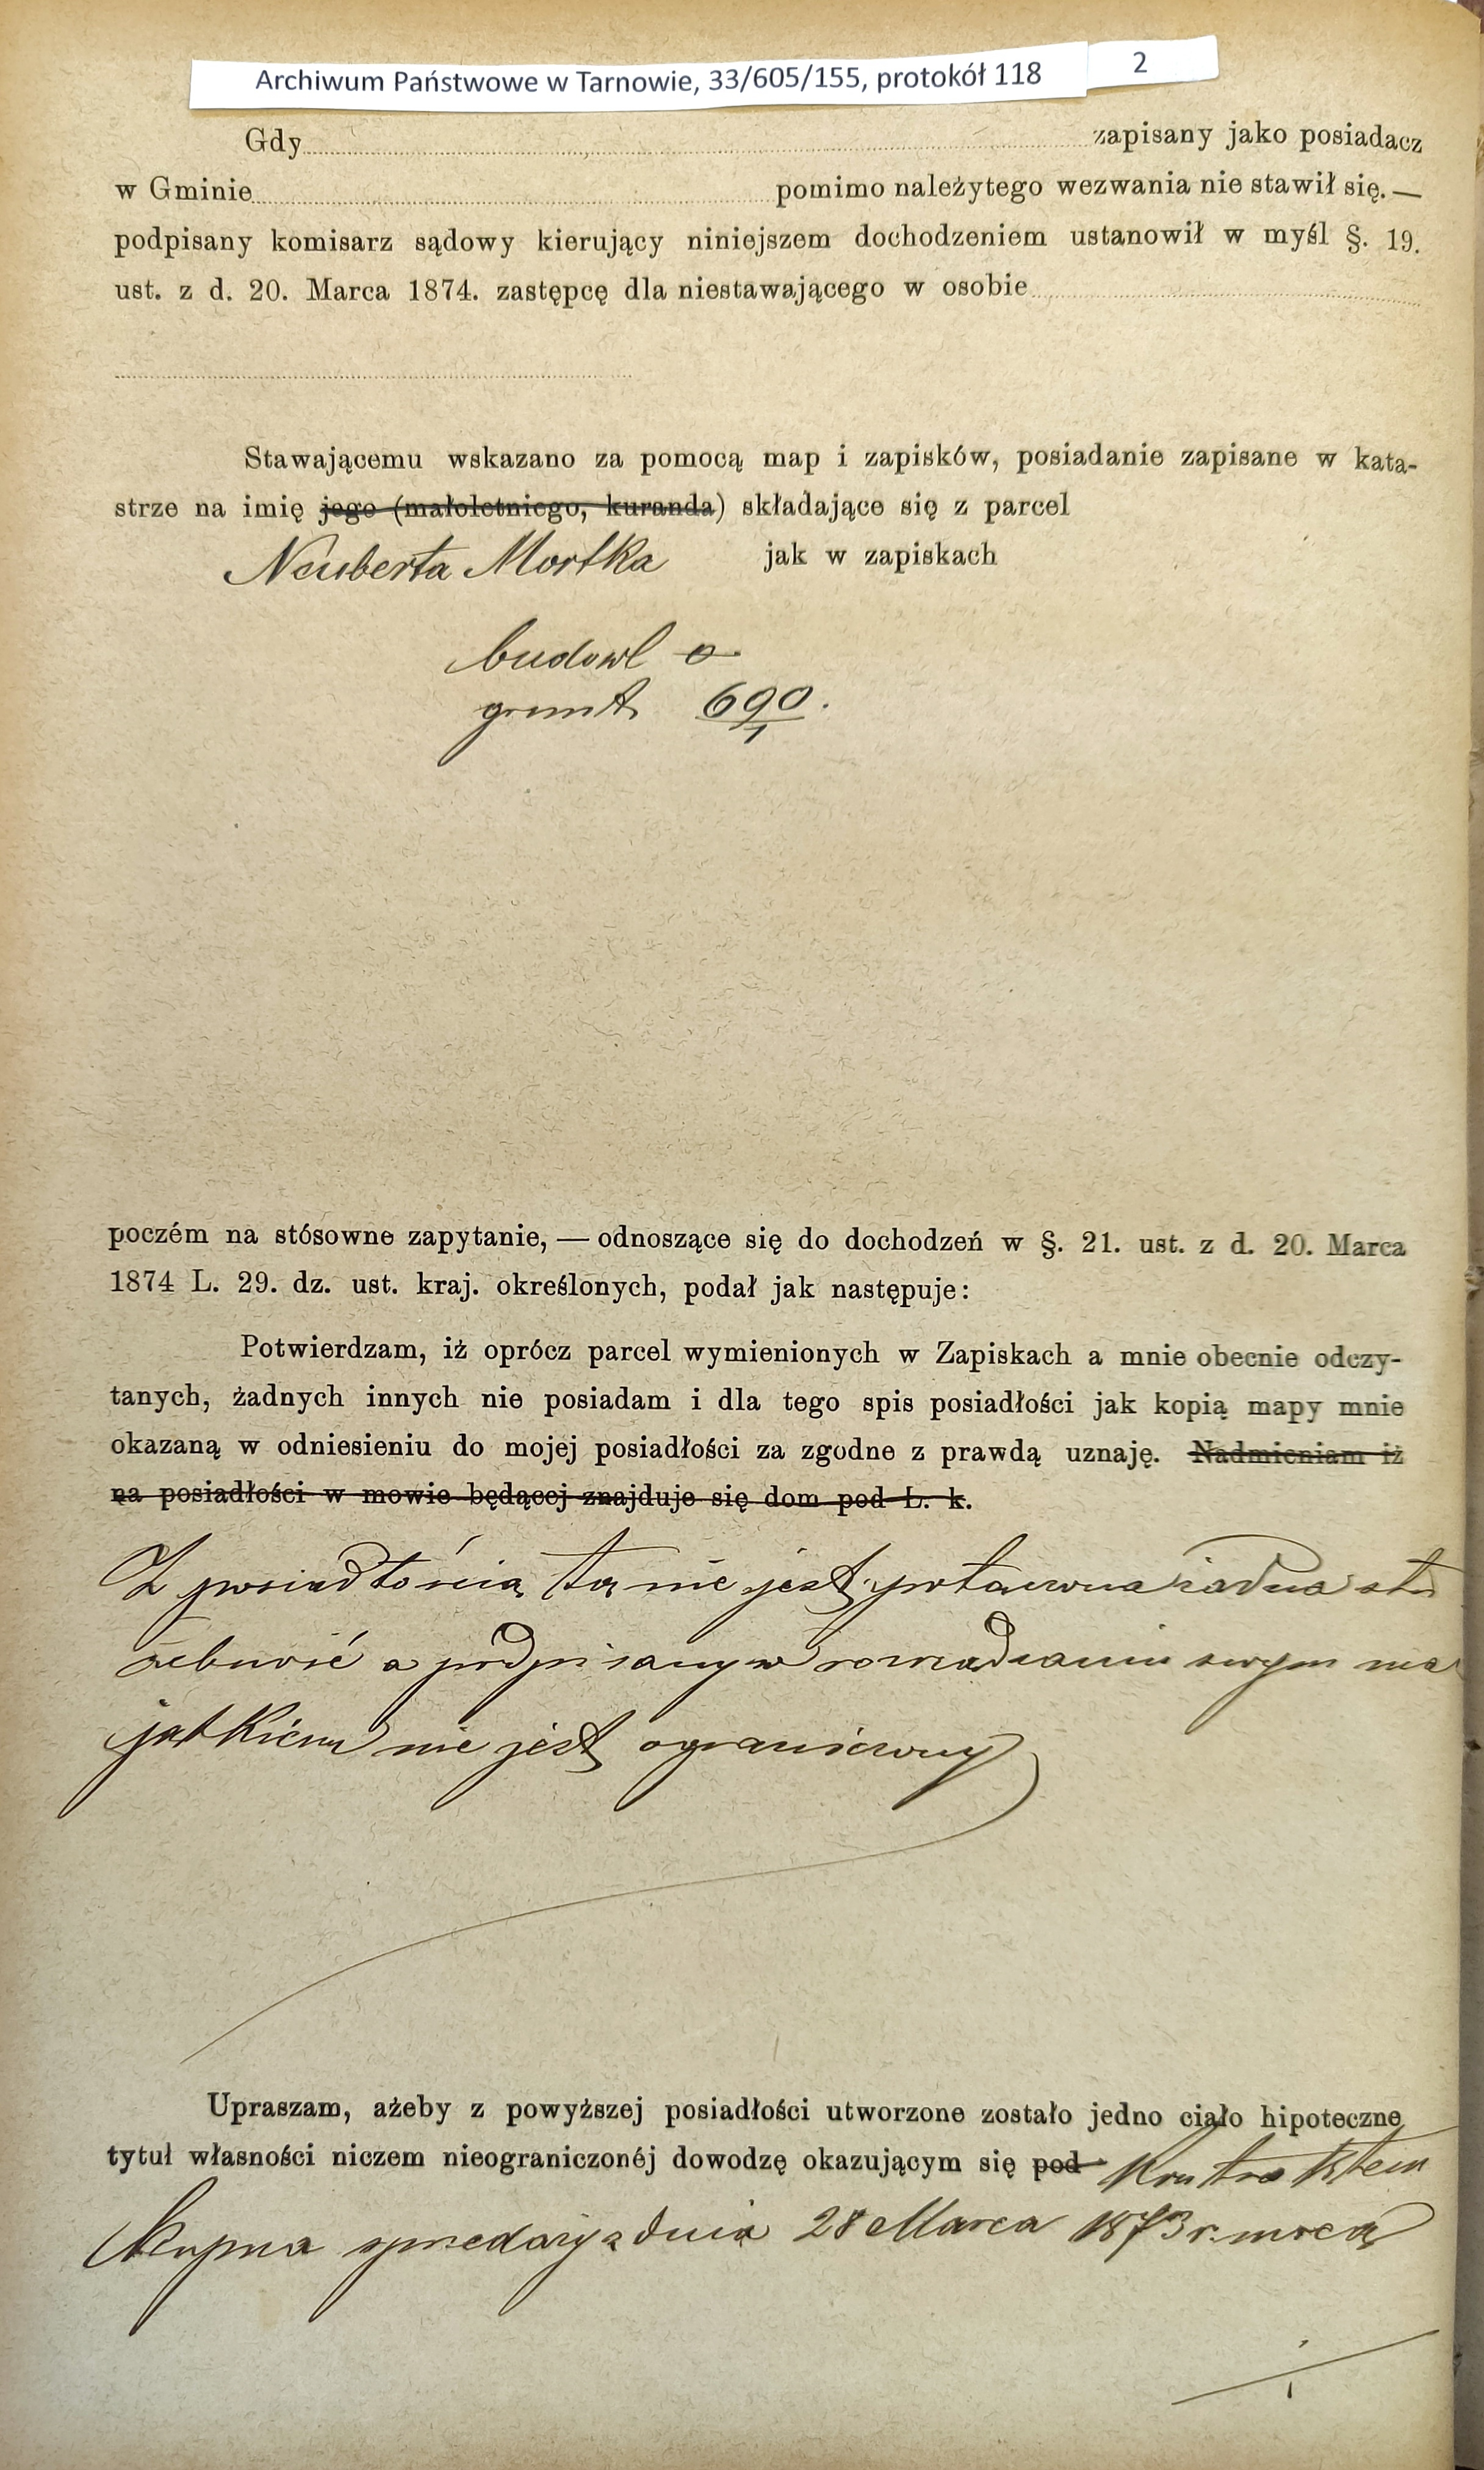 Archiwum Państwowe w Tarnowie, 33/605/155, protokół 118 2
Gdy zapisany jako posiadacz
w Gminie pomimo należytego wezwania nie stawił się. —
podpisany komisarz sądowy kierujący niniejszem dochodzeniem ustanowił w myśl §. 19.
ust. z d. 20. Marca 1874. zastępcę dla niestawającego w osobie
Stawającemu wskazano za pomocą map i zapisków, posiadanie zapisane w kata-
strze na imię jego (małoletniego, kuranda) składające się z parcel
Neuberta Mortka jak w zapiskach
budowl o
grunt 690/1.
poczém na stósowne zapytanie, — odnoszące się do dochodzeń w §. 21. ust. z d. 20. Marca
1874 L. 29. dz. ust. kraj. określonych, podał jak następuje:
Potwierdzam, iż oprócz parcel wymienionych w Zapiskach a mnie obecnie odczy-
tanych, żadnych innych nie posiadam i dla tego spis posiadłości jak kopią mapy mnie
okazaną w odniesieniu do mojej posiadłości za zgodne z prawdą uznaję. Nadmieniam iż
na posiadłości w mowie będącej znajduje się dom pod L. k.
Z posiadłością tą nie jest połączona żadna słu
żebność a podpisany w rozrządzaniu swym ma
jątkiem nie jest ograniczony
Upraszam, ażeby z powyższej posiadłości utworzone zostało jedno ciało hipoteczne
tytuł własności niczem nieograniczonéj dowodzę okazującym się pod Kontraktem
Kupna sprzedaży z dnia 28 Marca 1873 r. mocą